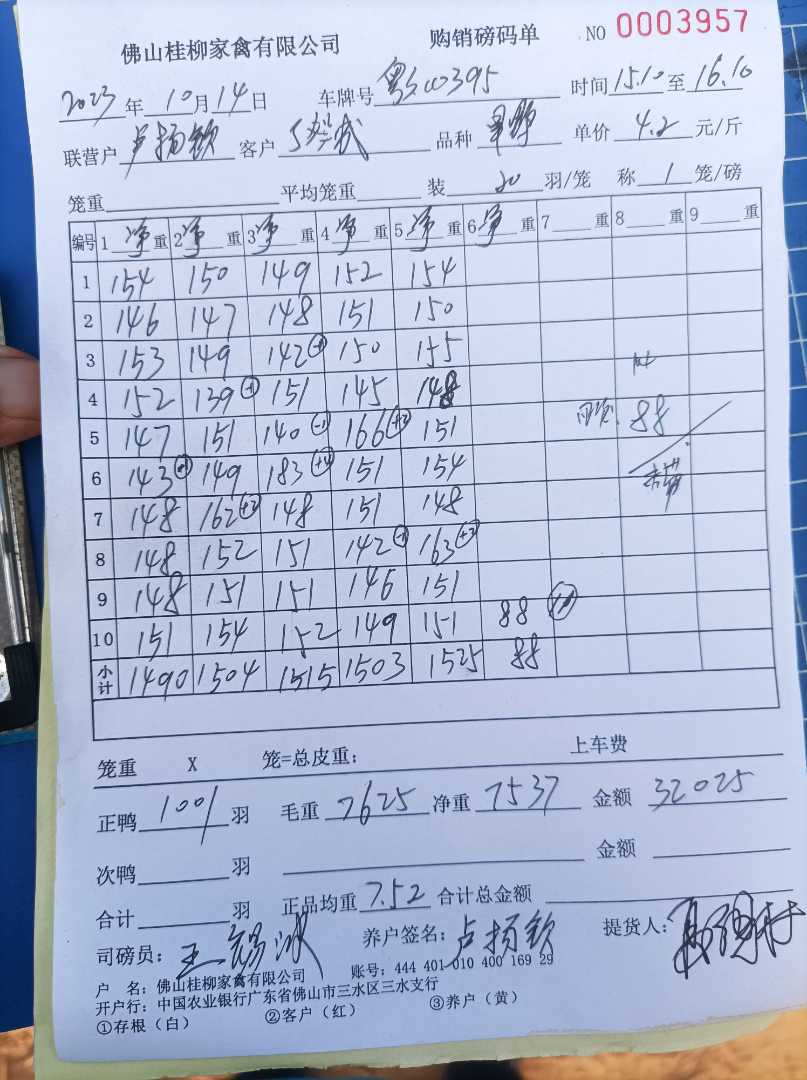 佛山桂柳家禽有限公司 购销磅码单 NO 0003957
2023年10月14日 车牌号 时间15.10至16.10
联营户 卢扬钦 客户 品种 单价 4.2 元/斤
笼重 平均笼重 装 20 羽/笼 称 1 笼/磅
编号 1 净 重 2 净 重 3 净 重 4 净 重 5 净 重 6 净 重 7 重 8 重 9 重
1 154 150 149 152 154
2 146 147 148 151 150
3 153 149 142 -1 150 155
4 152 139 -1 151 145 148
5 147 151 140 -1 166 151 88
6 143 149 183 151 154
7 148 162 148 151 148
8 148 152 151 142 -1 163
9 148 151 151 146 151
10 151 154 152 149 151 88
小计 1490 1504 1515 1503 1525 88
笼重 X 笼=总皮重: 上车费
正鸭 1001 羽 毛重 7625 净重 7537 金额 32025
次鸭 羽 金额
合计 羽 正品均重 7.52 合计总金额
司磅员: 养户签名: 卢扬钦 提货人:
户 名: 佛山桂柳家禽有限公司 账号: 444 401 010 400 169 29
开户行: 中国农业银行广东省佛山市三水区三水支行
①存根（白） ②客户（红） ③养户（黄）